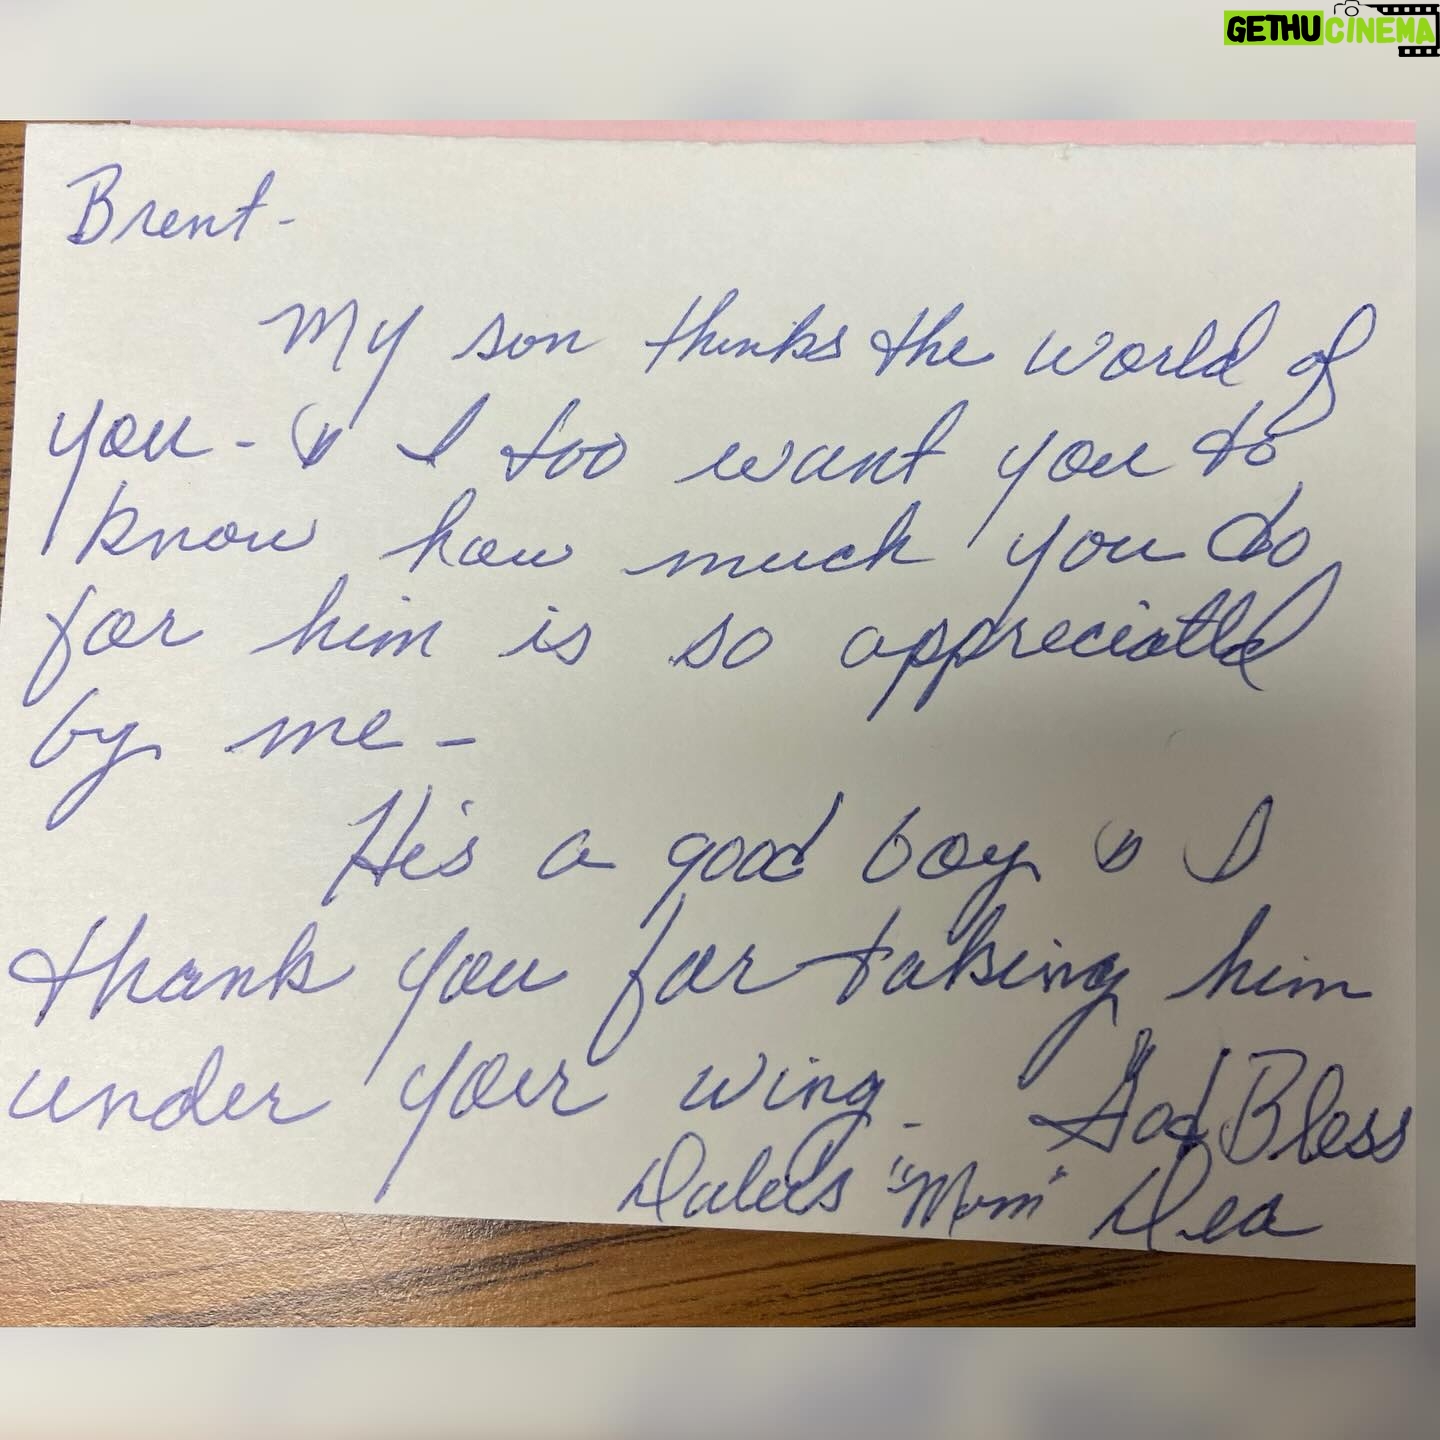 GETHUCINEMA
Brent-
My son thinks the world of
you - & I too want you to
know how much you do
for him is so appreciated
by me -
He's a good boy & I
thank you for taking him
under your wing - God Bless
"Mom" Dea